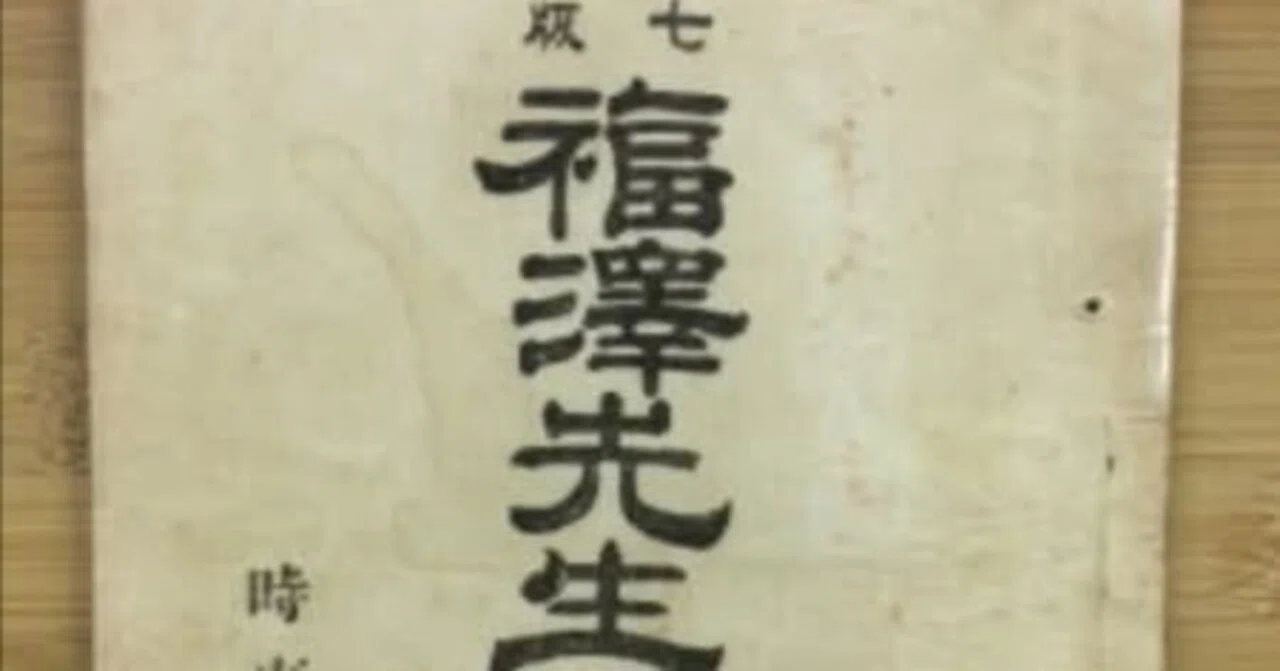 七版
福澤先生
時